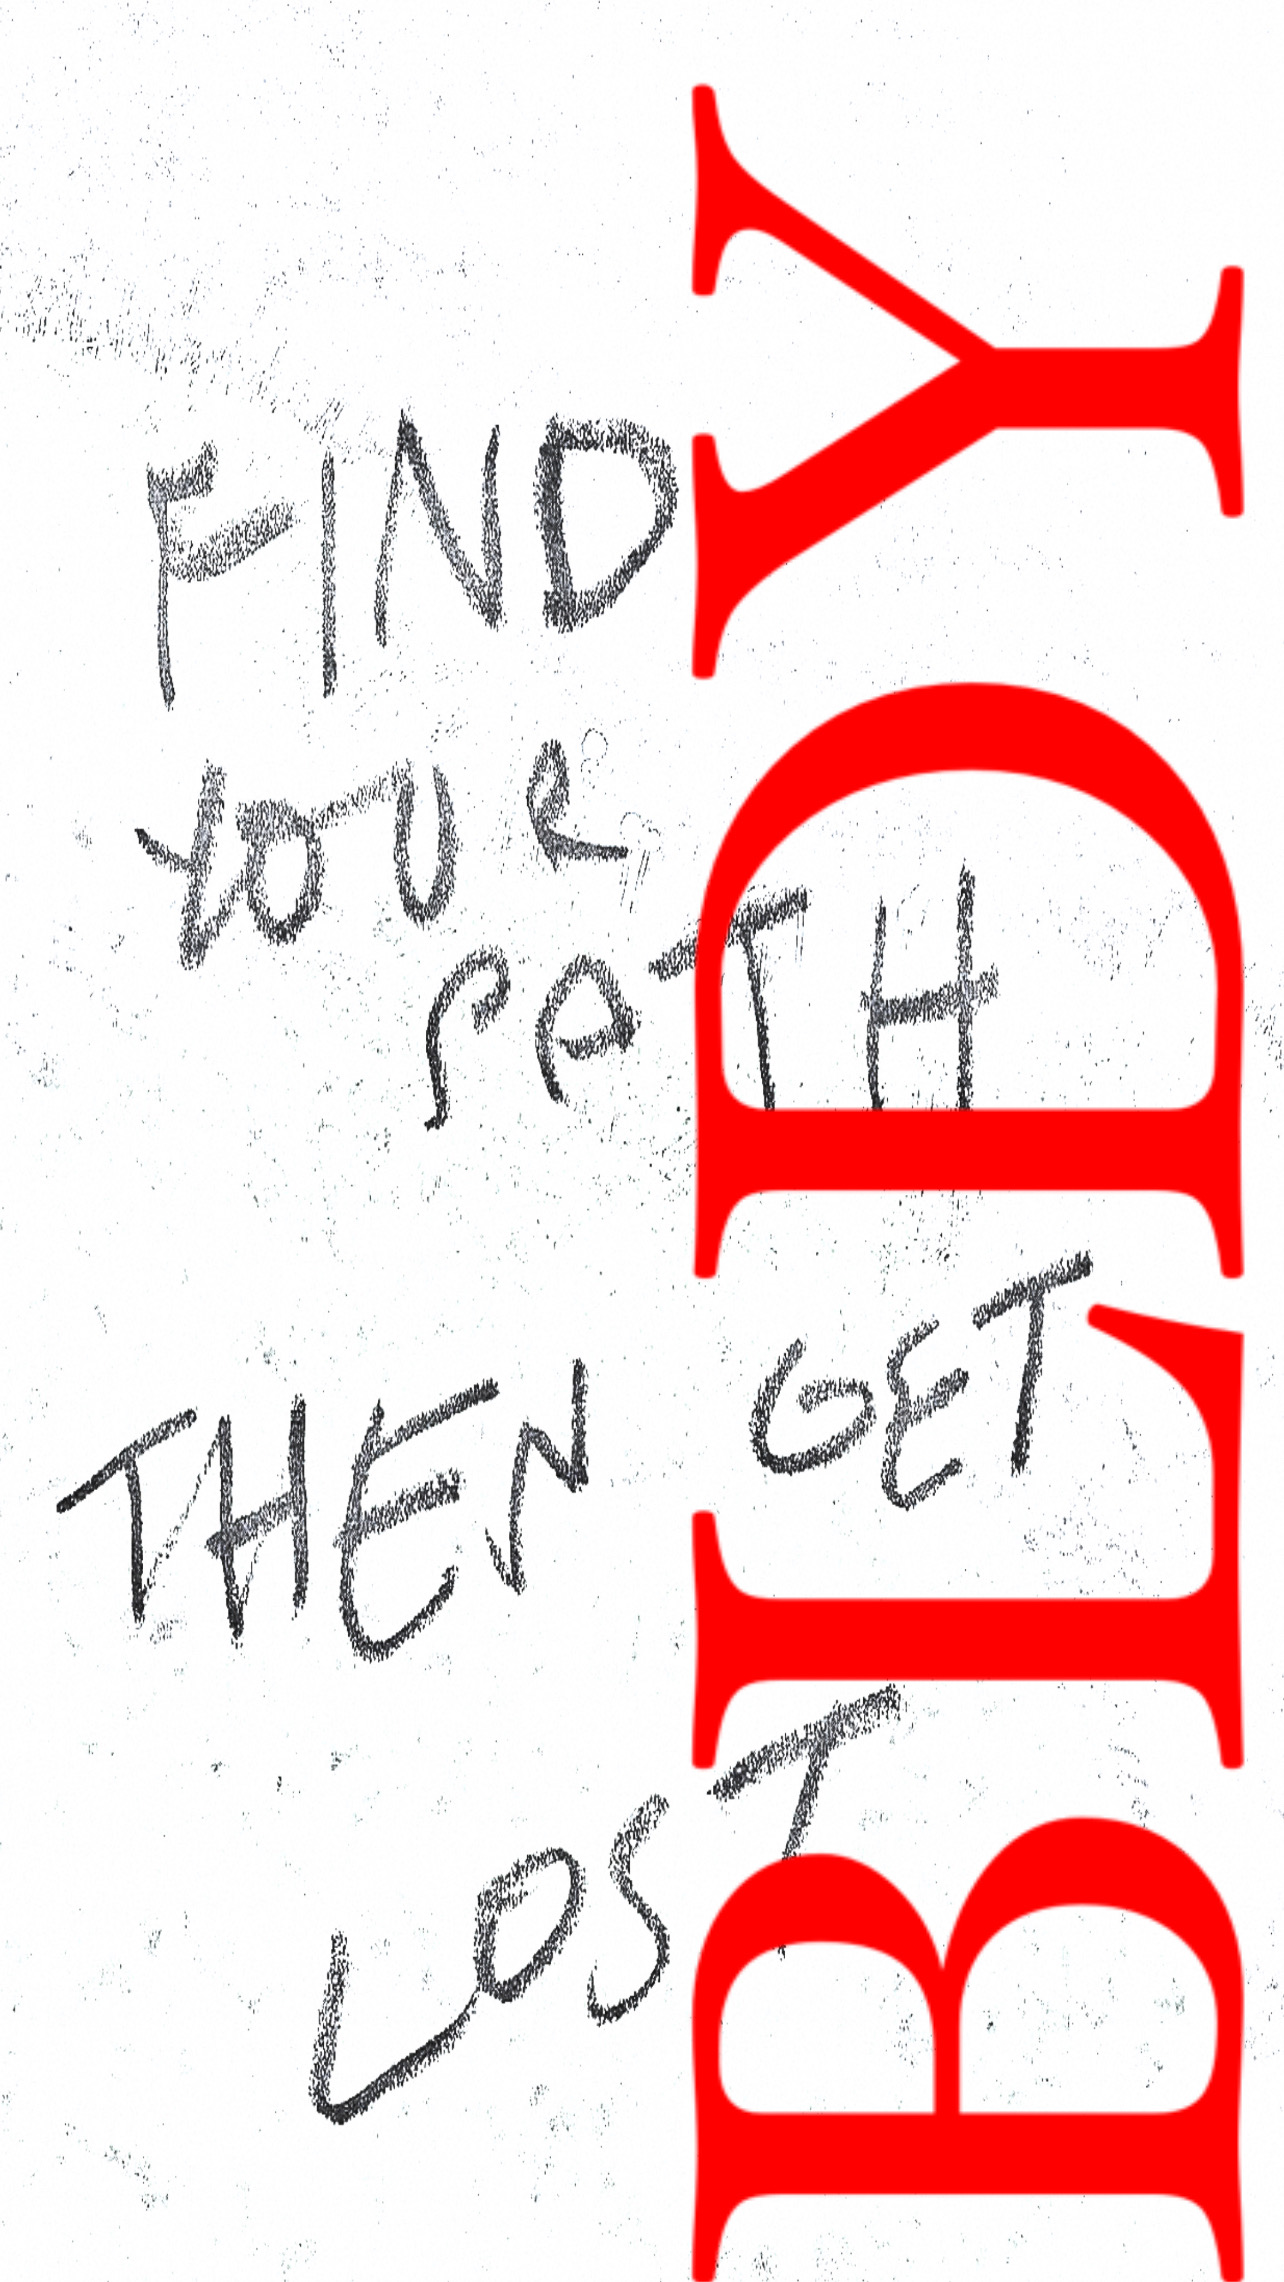 FIND
YOUR
PATH
THEN GET
LOST
BLDY